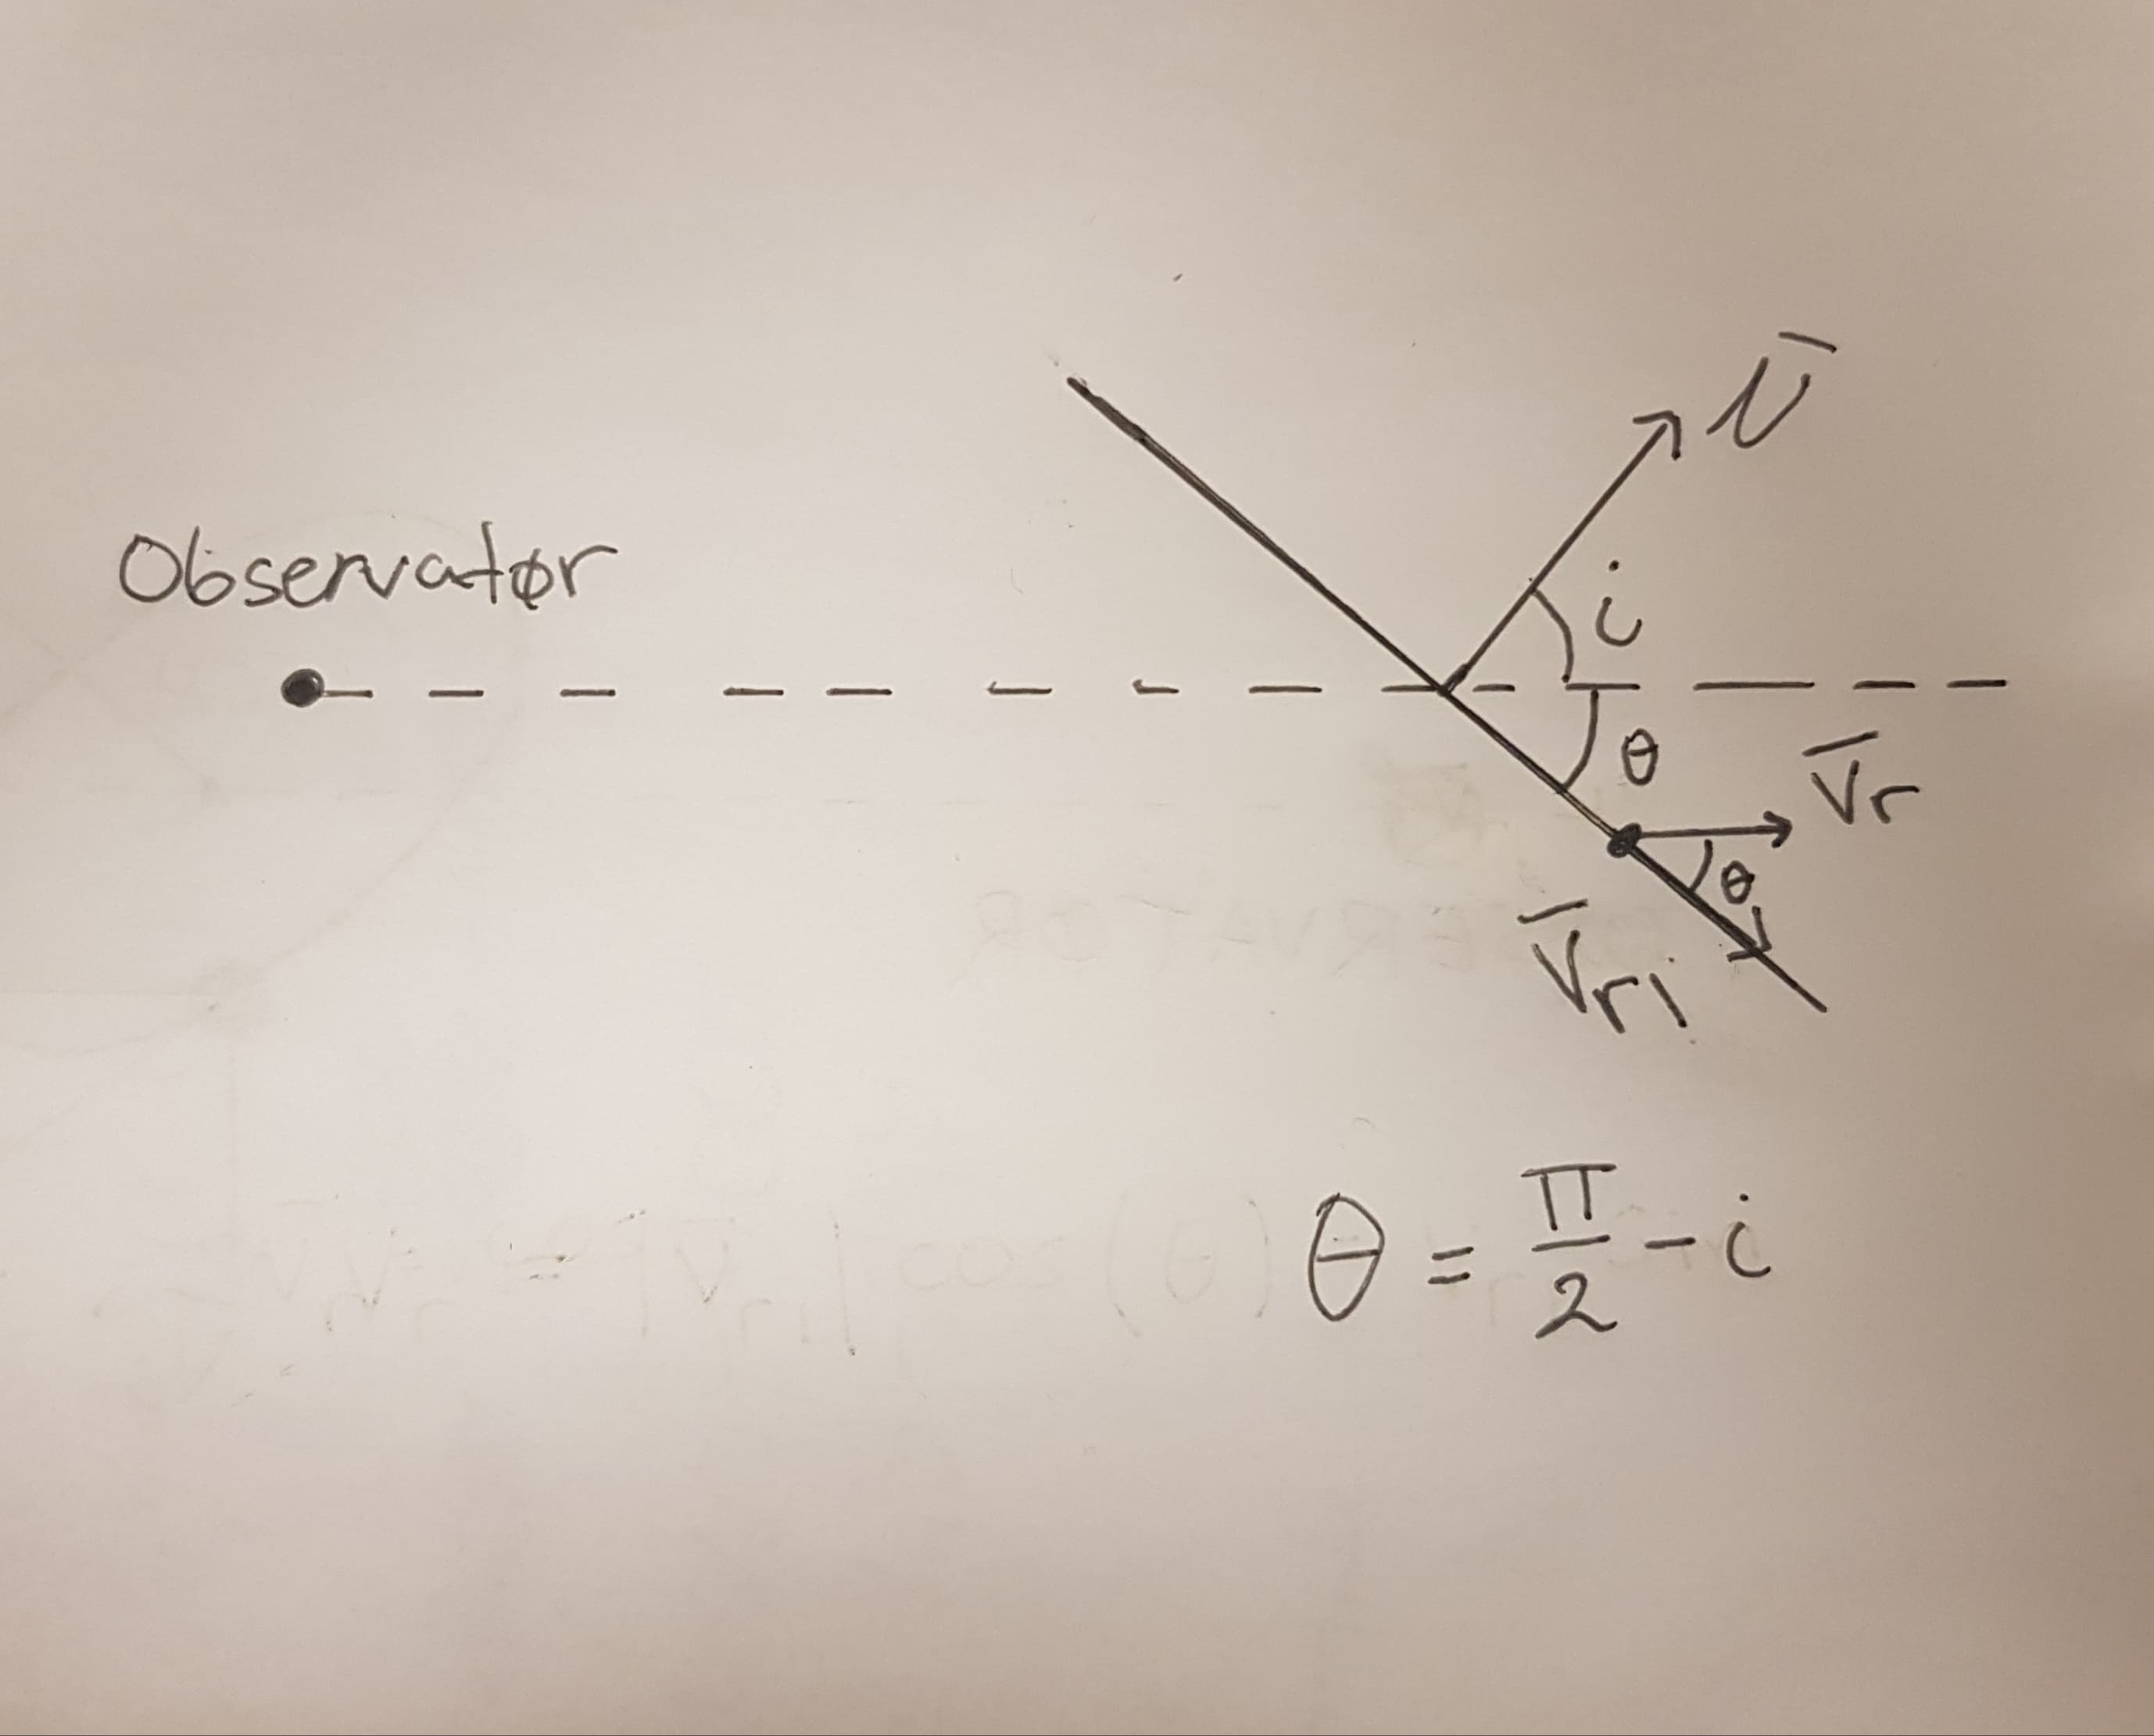 N̅
Observatør
i
θ
V̅r
θ
V̅ri
θ = π/2 - i